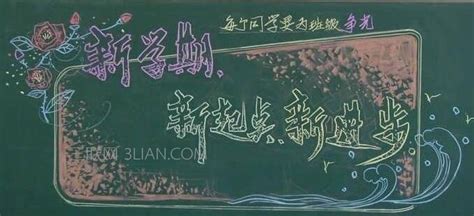 每个同学要为班级争光
新学期、
新起点、新进步
三联网 3LIAN.COM